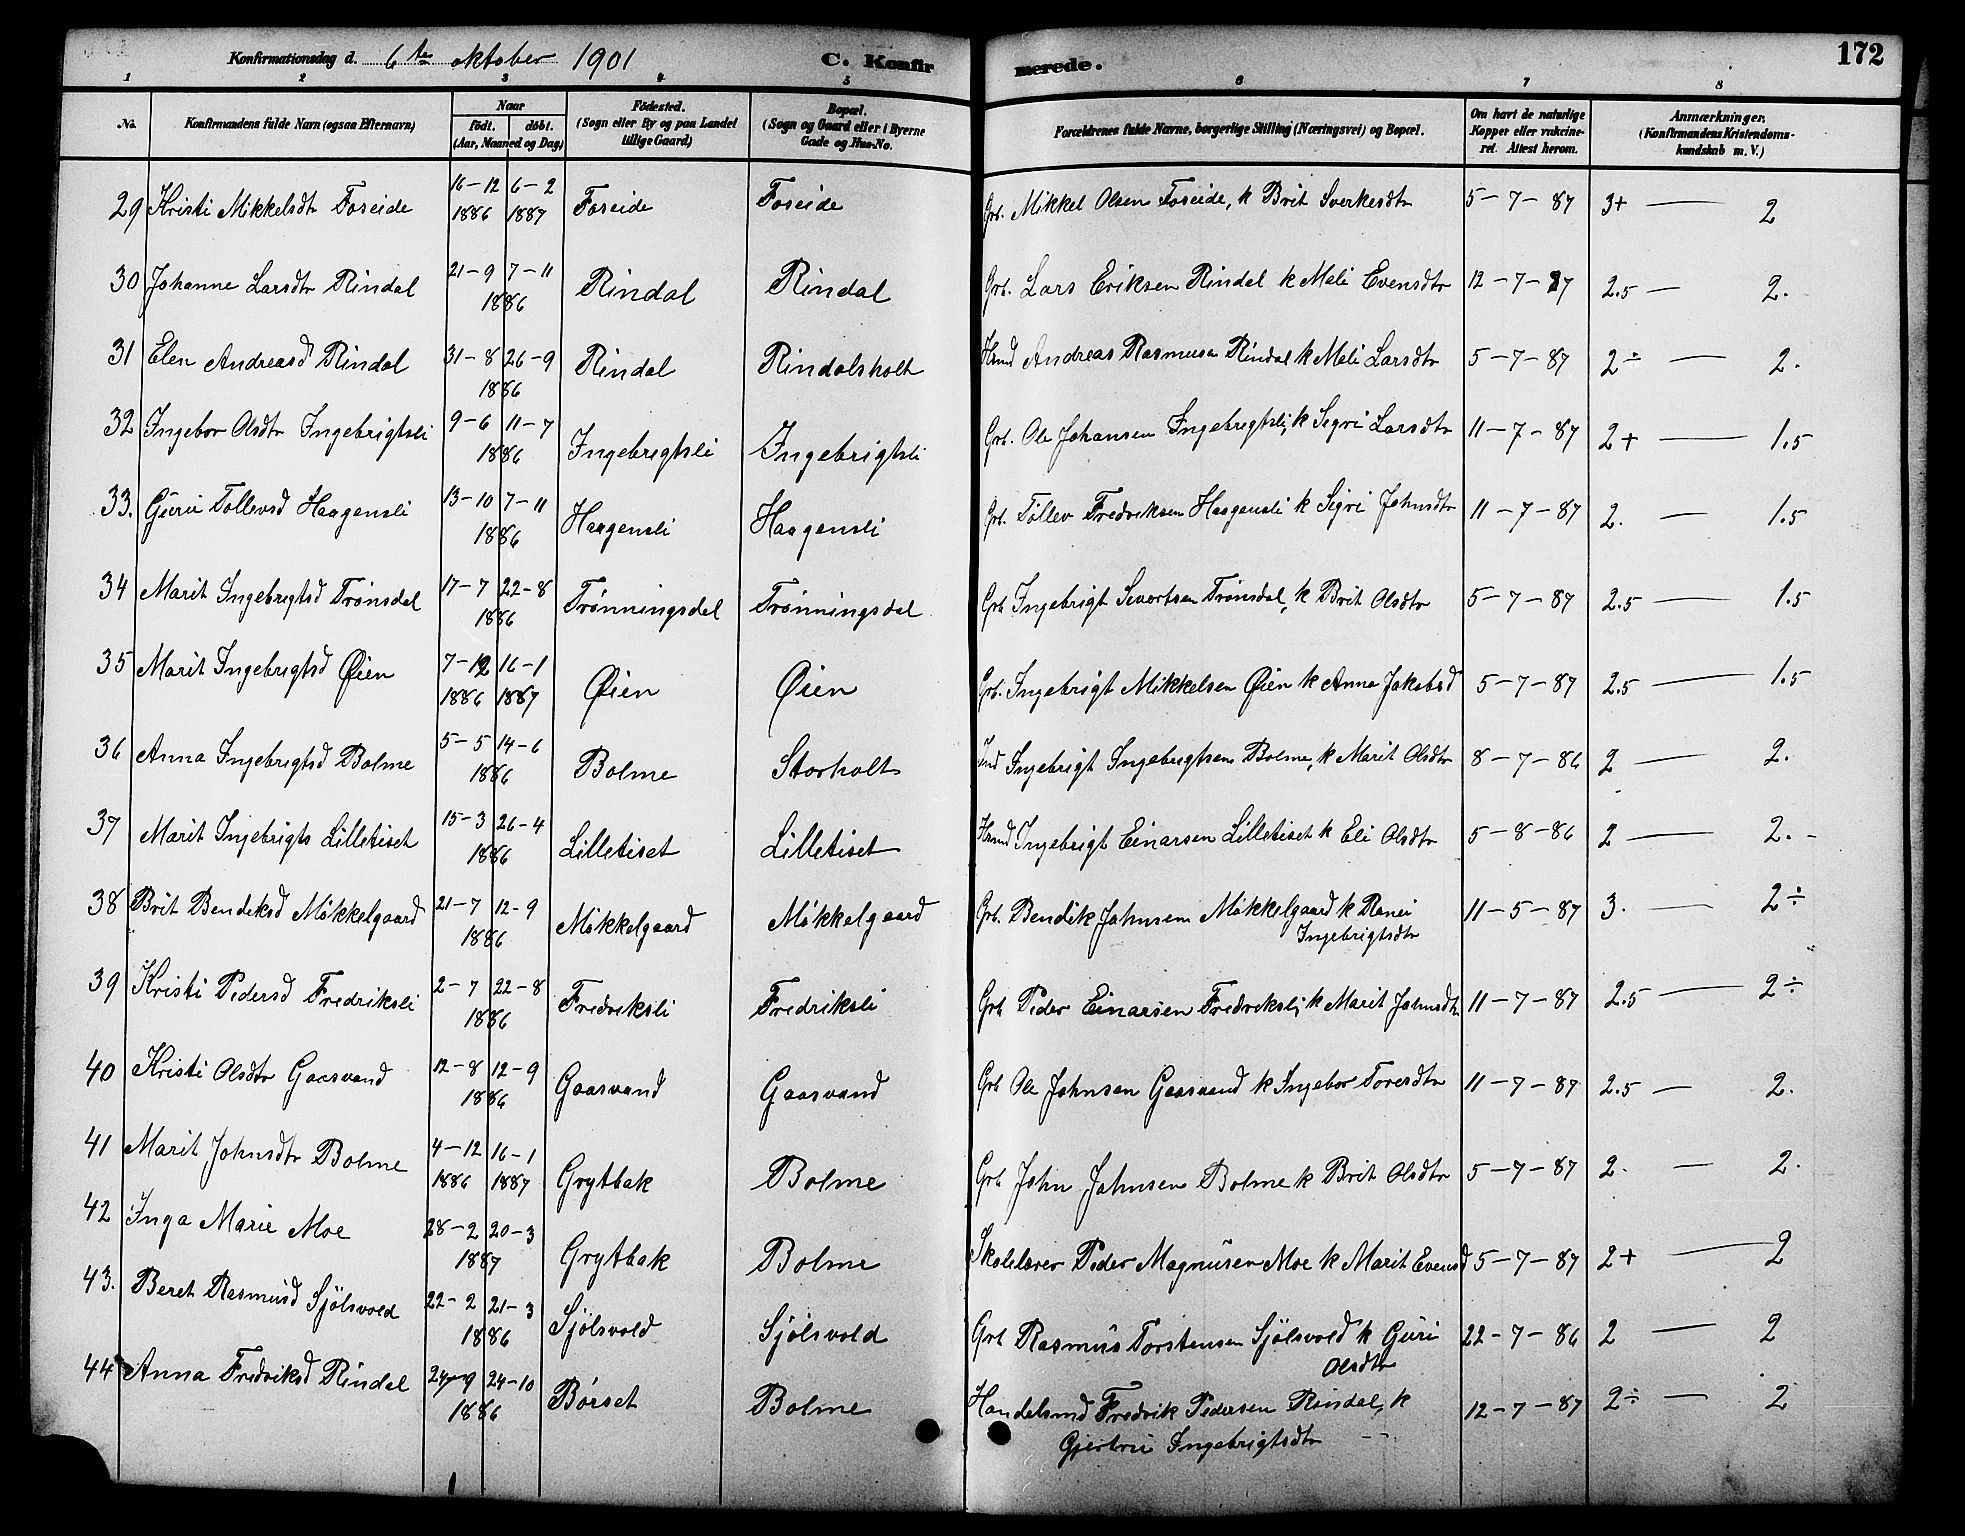 Konfirmationsdag d. 6te oktober 1901 C. Konfir merede. 172
1 2 3 4 5 6 7 8
No. Konfirmandens fulde Navn (ogsaa Efternavn) Naar födt. döbt. (Aar, Maaned og Dag) Födested. (Sogn eller By og paa Landet tillige Gaard) Bopæl. (Sogn og Gaard eller i Byerne Gade og Hus-No. Forældrenes fulde Navne, borgerlige Stilling (Næringsvei) og Bopæl. Om havt de naturlige Kopper eller vakcineret. Attest herom. Anmærkninger. (Konfirmandens Kristendomskundskab m. V.)
29 Kristi Mikkelsdtr Foseide 16-12 1886 6-2 1887 Foseide Foseide Grb. Mikkel Olsen Foseide, k Brit Sverkesdtr 5-7-87 3+ — 2
30 Johanne Larsdtr Rindal 21-9 7-11 1886 Rindal Rindal Grb. Lars Eriksen Rindal k Mali Evensdtr 12-7-87 2.5 — 2.
31 Elen Andreasd Rindal 31-8 26-9 1886 Rindal Rindalsholt Hmd Andreas Rasmusen Rindal k Mali Larsdtr 5-7-87 2÷ — 2.
32 Ingebor Olsdtr Ingebrigtsli 9-6 11-7 1886 Ingebrigtsli Ingebrigtsli Grb. Ole Johansen Ingebrigtsli, k Sigri Larsdtr 11-7-87 2+ — 1.5
33. Guru Tollevsd Haagensli 13-10 7-11 1886 Haagensli Haagensli Grb. Tollev Fredriksen Haagensli k Sigri Johnsdtr 11-7-87 2. — 1.5
34 Marit Ingebrigtsd Trönsdal 17-7 22-8 1886 Trönningsdal Trönningsdal Grb Ingebrigt Sivertsen Trönsdal, k Brit Olsdtr 5-7-87 2.5 — 1.5
35 Marit Ingebrigtsd Øien 7-12 1886 16-1 1887 Øien Øien Grb. Ingebrigt Mikkelsen Øien k Anna Jakobsd 5-7-87 2.5 — 1.5
36 Anna Ingebrigtsd Bolme 5-5 14-6 1886 Bolme Storholt Ind Ingebrigt Ingebrigtsen Bolme, k Marit Olsdtr 8-7-86 2 — 2.
37 Marit Ingebrigts Lilletiset 15-3 26-4 1886 Lilletiset Lilletiset Hmd Ingebrigt Einarsen Lilletiset k Eli Olsdtr 5-8-86 2 — 2.-
38 Brit Bendiksd Mökkelgaard 21-7 12-9 1886 Mökkelgaard Mökkelgaard Grb. Bendik Johnsen Mökkelgaard k Ranei
Ingebrigtsdtr 11-5-87 3. — 2÷
39 Kristi Pedersd Fredriksli 2-7 22-8 1886 Fredriksli Fredriksli Grb Peder Einarsen Fredriksli, k Marit Johnsdtr 11-7-87 2.5 — 2÷
40 Kristi Olsdtr Gaasvand 12-8 12-9 1886 Gaasvand Gaasvand Grb Ole Johnsen Gaasvand k Ingebor Toresdtr 11-7-87 2.5 — 2.
41 Marit Johnsdtr Bolme 4-12 1886 16-1 1887 Grytbak Bolme Grb John Johnsen Bolme k Brit Olsdtr 5-7-87 2. — 2.
42 Inga Marie Moe 28-2 20-3 1887 Grytbak Bolme Skolelærer Peder Magnusen Moe k Marit Evensd 5-7-87 2+ — 2
43. Beret Rasmusd Sjölsvold 22-2 21-3 1886 Sjölsvold Sjölsvold Grb Rasmus Torstensen Sjölsvold k Guri
Olsdtr 22-7-86 2 — 2
44 Anna Fredriksd Rindal 24-9 24-10 1886 Börset Bolme Handelsmd Fredrik Pedersen Rindal, k
Gjertru Ingebrigtsdtr 12-7-87 2÷ — 2